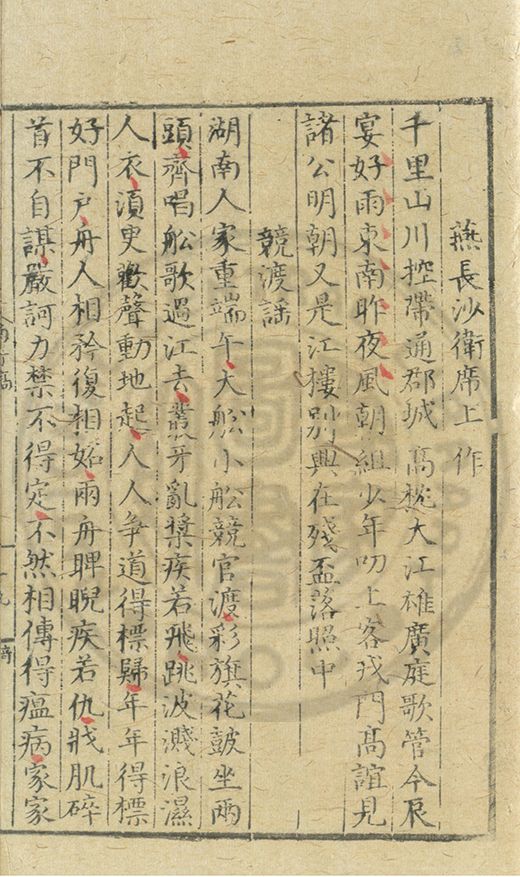 燕長沙衛席上作
千里山川控帶通郡城高枕大江雄廣庭歌管今辰
宴好雨東南昨夜風朝組少年叨上客戎門高誼見
諸公明朝又是江樓別興在殘盃落照中
競渡謡
湖南人家重端午大舩小舩競官渡彩旗花皷坐兩
頭齊唱舩歌過江去叢牙亂槳疾若飛跳波濺浪濕
人衣湏臾歡聲動地起人人爭道得標歸年年得標
好門戸舟人相矜復相妬兩舟睥睨疾若仇戕肌碎
首不自謀嚴訶力禁不得定不然相傳得瘟病家家